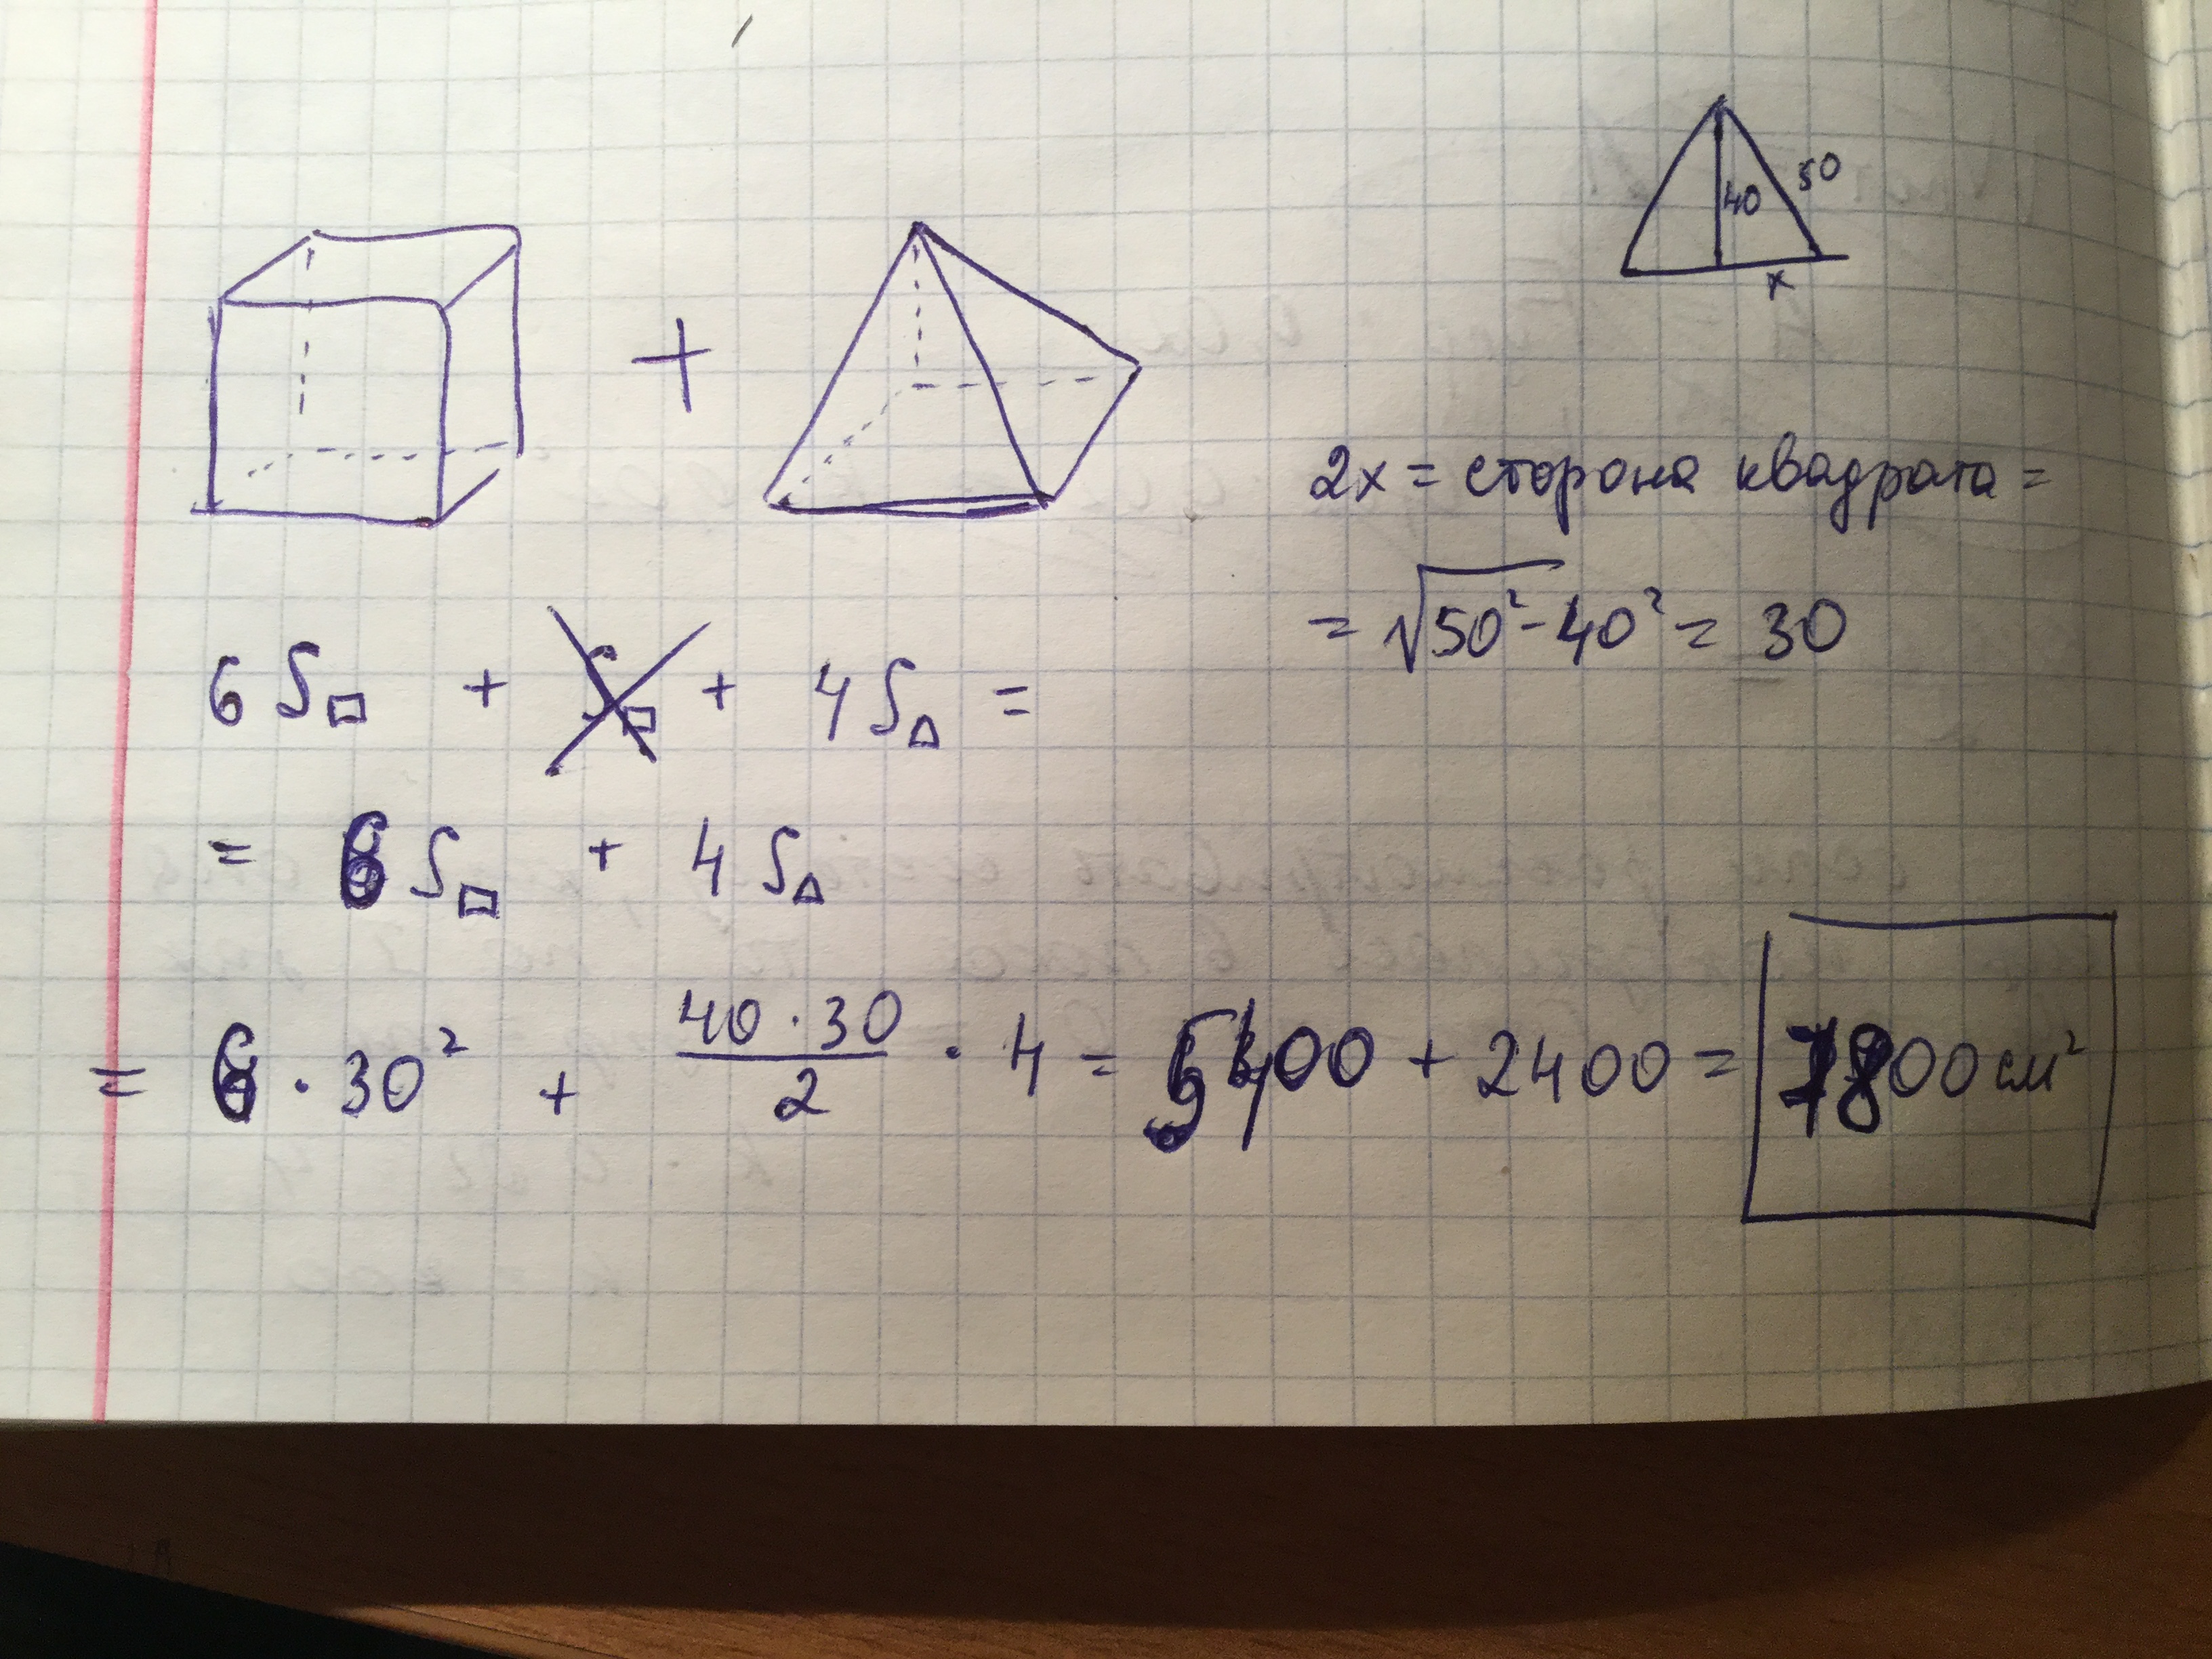 40 50
x
2x = сторона квадрата =
= √50² - 40² = 30
6 S□ + S□ + 4 S△ =
= 6 S□ + 4 S△
= 6 · 30² + 40 · 30 / 2 · 4 = 5400 + 2400 = 7800 см²